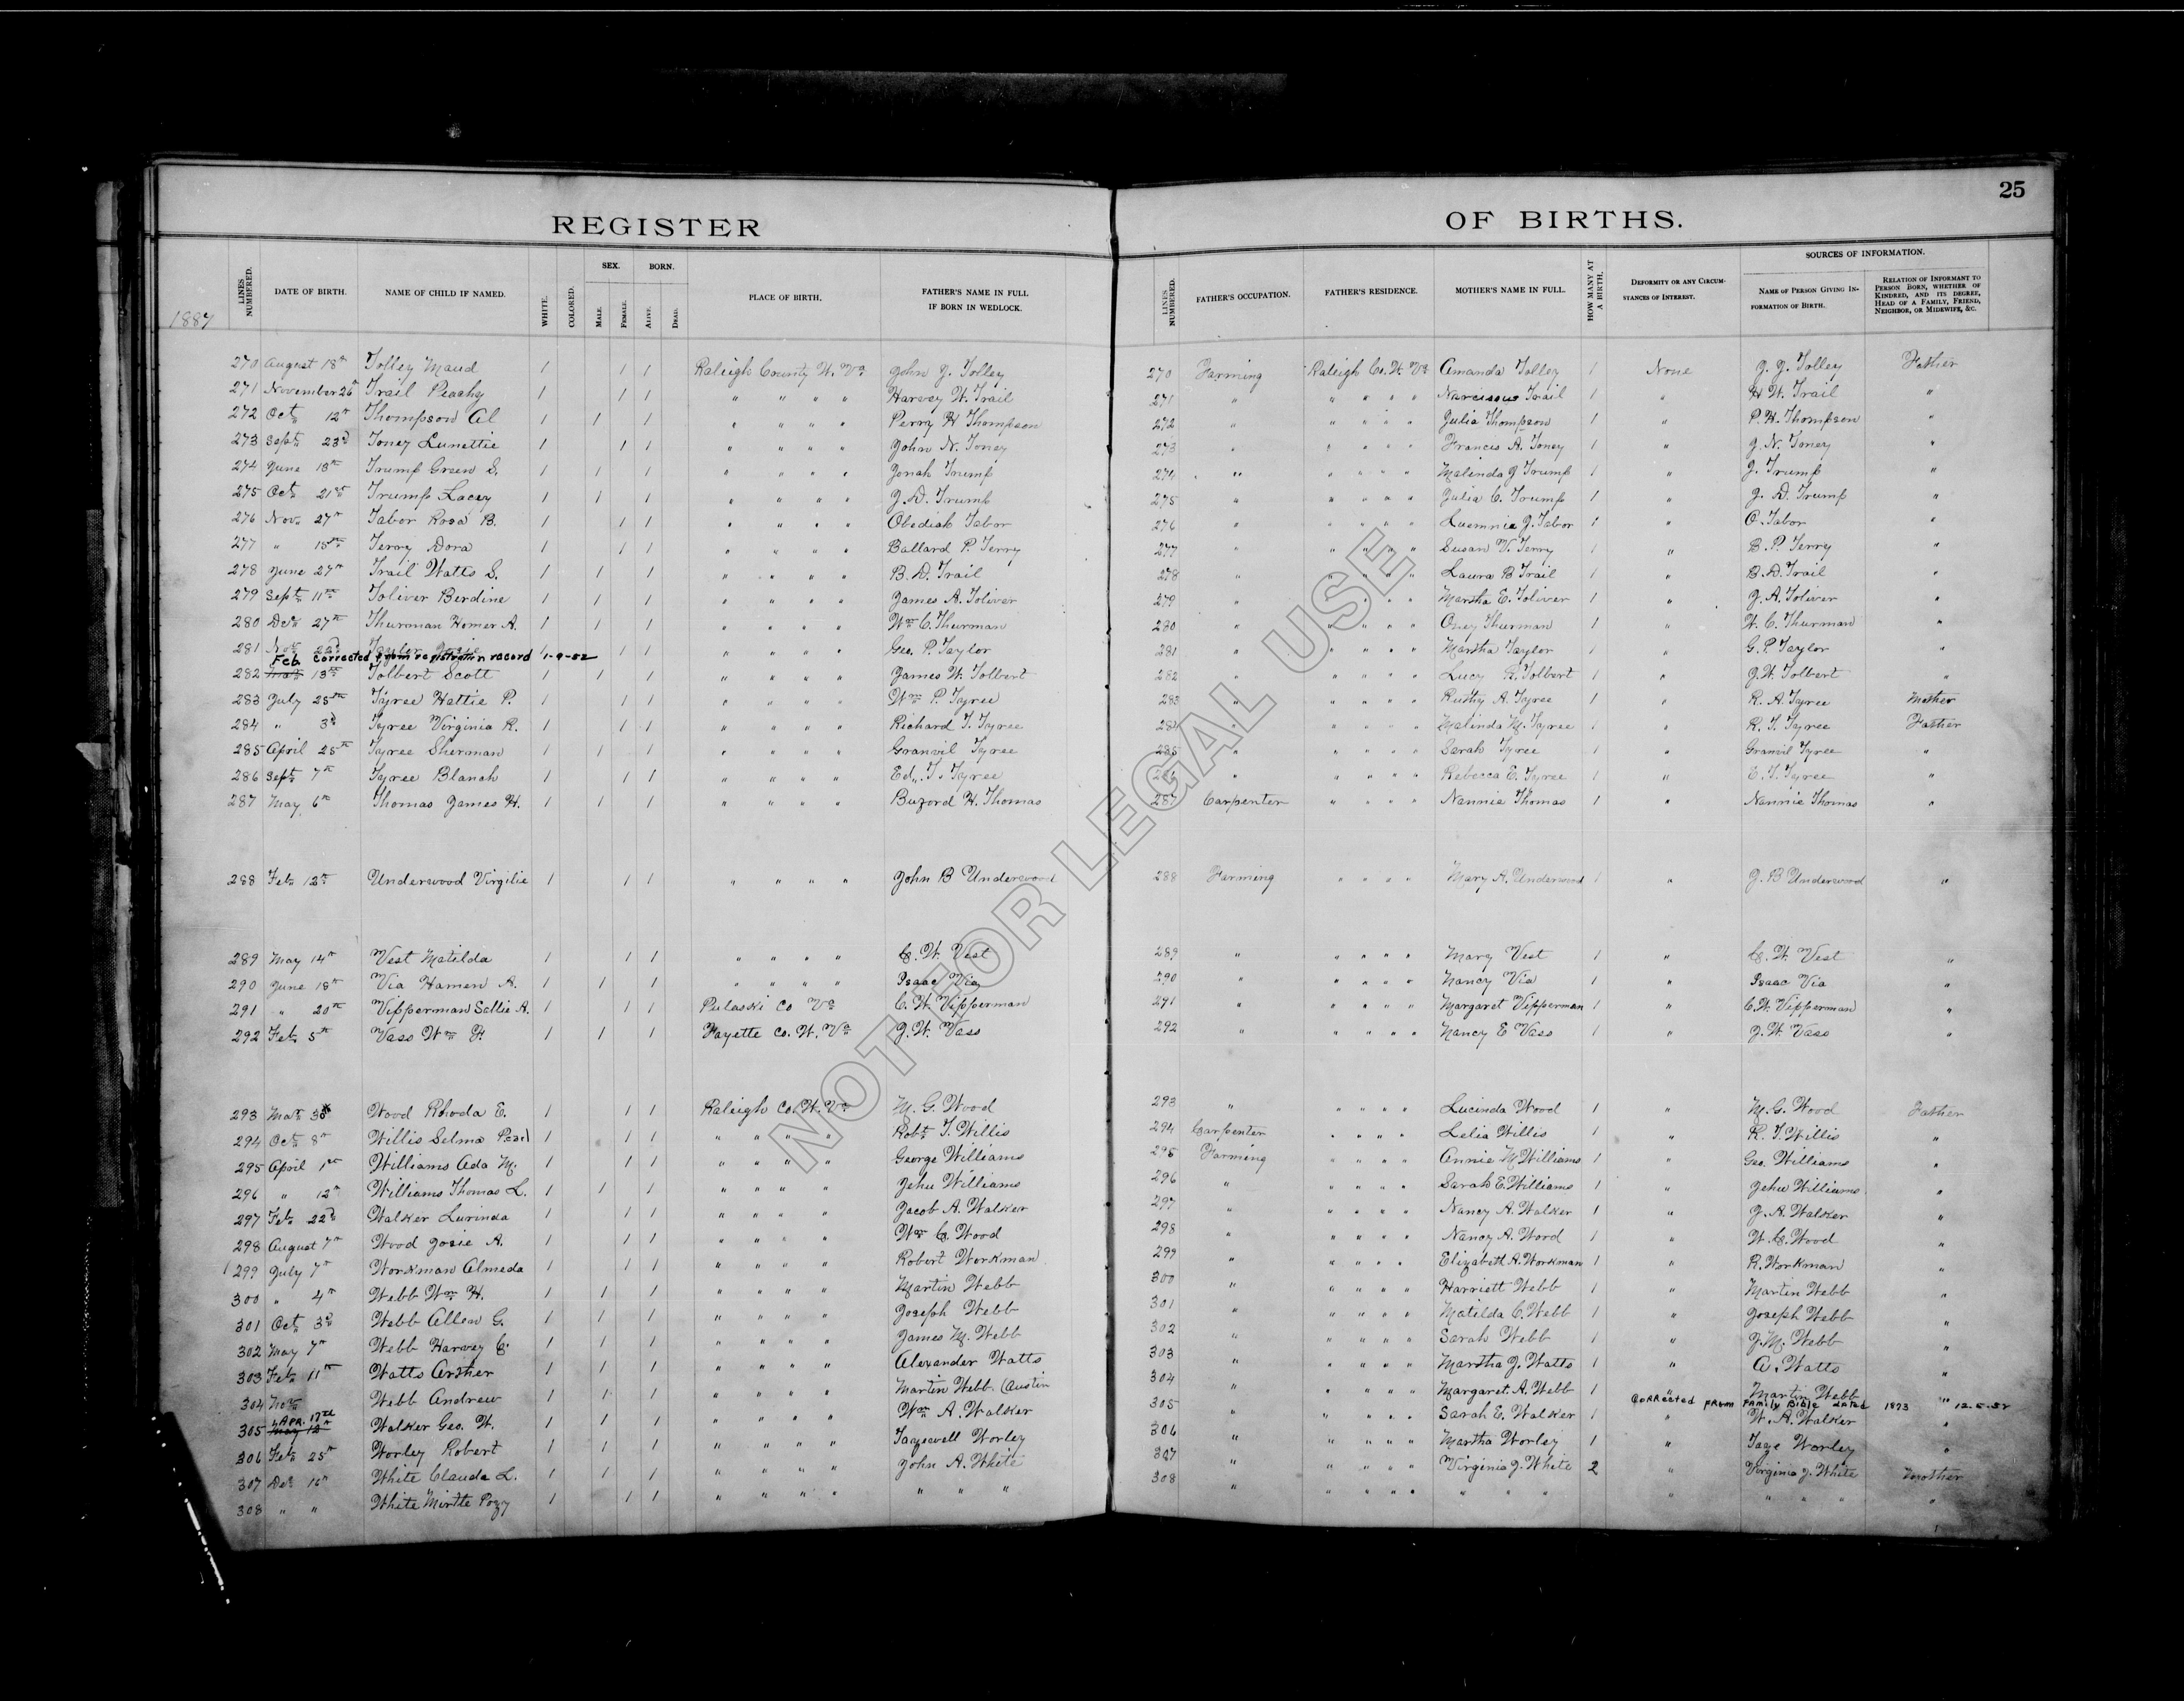 25
REGISTER OF BIRTHS.
SOURCES OF INFORMATION.
LINES NUMBERED. DATE OF BIRTH. NAME OF CHILD IF NAMED. WHITE. COLORED. SEX. MALE. FEMALE. BORN. ALIVE. DEAD. PLACE OF BIRTH. FATHER'S NAME IN FULL IF BORN IN WEDLOCK. LINES NUMBERED. FATHER'S OCCUPATION. FATHER'S RESIDENCE. MOTHER'S NAME IN FULL. HOW MANY AT A BIRTH. DEFORMITY OR ANY CIRCUMSTANCES OF INTEREST. NAME OF PERSON GIVING INFORMATION OF BIRTH. RELATION OF INFORMANT TO PERSON BORN, WHETHER OF KINDRED, AND ITS DEGREE, HEAD OF A FAMILY, FRIEND, NEIGHBOR, OR MIDEWIFE, &C.
1887
270 August 18th Tolley Maud 1 1 1 Raleigh County W. Va John J. Tolley 270 Farming Raleigh Co. W. Va Amanda Tolley 1 None J. J. Tolley Father
271 November 26th Trail Peachy 1 1 1 " " " " Harvey W. Trail 271 " " " " " Narcissus Trail 1 " H W. Trail "
272 Oct 12th Thompson Al 1 1 1 " " " " Perry H Thompson 272 " " " " " Julia Thompson 1 " P. H. Thompson "
273 Sept 23d Toney Lunettie 1 1 1 " " " " John N. Toney 273 " " " " " Francis A. Toney 1 " J. N. Toney "
274 June 18th Trump Green S. 1 1 1 " " " " Jonah Trump 274 " " " " " Malinda J Trump 1 " J. Trump "
275 Oct 21st Trump Lacey 1 1 1 " " " " J. D. Trump 275 " " " " " Julia C. Trump 1 " J. D. Trump "
276 Nov. 27th Tabor Rosa B. 1 1 1 " " " " Obediah Tabor 276 " " " " " Luemnie J. Tabor 1 " O. Tabor "
277 " 15th Terry Dora 1 1 1 " " " " Ballard P. Terry 277 " " " " " Susan V. Terry 1 " B. P. Terry "
278 June 27th Trail Watts S. 1 1 1 " " " " B. D. Trail 278 " " " " " Laura B Trail 1 " B. D. Trail "
279 Sept 11th Toliver Berdine 1 1 1 " " " " James A. Toliver 279 " " " " " Martha E. Toliver 1 " J. A. Toliver "
280 Dec 27th Thurman Homer A. 1 1 1 " " " " Wm C. Thurman 280 " " " " " Oney Thurman 1 " W. C. Thurman "
281 Nov 22d Taylor 1 1 1 " " " " Geo. P. Taylor 281 " " " " " Martha Taylor 1 " G. P. Taylor "
Feb corrected from registration record 1-9-52
282 13th Tolbert Scott 1 1 1 " " " " James W. Tolbert 282 " " " " " Lucy R. Tolbert 1 " J. W. Tolbert "
283 July 25th Tyree Hattie P. 1 1 1 " " " " Wm P. Tyree 283 " " " " " Ruthy A. Tyree 1 " R. A. Tyree Mother
284 " 3d Tyree Virginia R. 1 1 1 " " " " Richard T. Tyree 284 " " " " " Malinda M. Tyree 1 " R. T. Tyree Father
285 April 25th Tyree Sherman 1 1 1 " " " " Granvil Tyree 285 " " " " " Sarah Tyree 1 " Granvil Tyree "
286 Sept 7th Tyree Blanch 1 1 1 " " " " Ed. T. Tyree 286 " " " " " Rebecca E. Tyree 1 " E. T. Tyree "
287 May 6th Thomas James H. 1 1 1 " " " " Buford H. Thomas 287 Carpenter " " " " Nannie Thomas 1 " Nannie Thomas "
288 Feb 12th Underwood Virgilie 1 1 1 " " " " John B Underwood 288 Farming " " " " Mary A. Underwood 1 " J. B Underwood "
289 May 14th Vest Matilda 1 1 1 " " " " C. W. Vest 289 " " " " " Mary Vest 1 " C. W. Vest "
290 June 18th Via Hamen A. 1 1 1 " " " " Isaac Via 290 " " " " " Nancy Via 1 " Isaac Via "
291 " 20th Vipperman Sallie A. 1 1 1 Pulaski Co Va C. W. Vipperman 291 " " " " " Margaret Vipperman 1 " C. W. Vipperman "
292 Feb. 5th Vass Wm H. 1 1 1 Fayette Co. W. Va J. W. Vass 292 " " " " " Nancy E Vass 1 " J. W. Vass "
293 Mar 30 Wood Rhoda E. 1 1 1 Raleigh Co. W. Va M. G. Wood 293 " " " " " Lucinda Wood 1 " M. G. Wood Father
294 Oct 8th Willis Selma Pearl 1 1 1 " " " " Robt T. Willis 294 Carpenter " " " " Lelia Willis 1 " R. T. Willis "
295 April 1st Williams Ada M. 1 1 1 " " " " George Williams 295 Farming " " " " Annie M Williams 1 " Geo. Williams "
296 " 12th Williams Thomas L. 1 1 1 " " " " Jehu Williams 296 " " " " " Sarah E. Williams 1 " Jehu Williams "
297 Feb 22d Walker Lurinda 1 1 1 " " " " Jacob A. Walker 297 " " " " " Nancy A. Walker 1 " J. A. Walker "
298 August 7th Wood Josie A. 1 1 1 " " " " Wm C. Wood 298 " " " " " Nancy A. Wood 1 " W. C. Wood "
299 July 7th Workman Almeda 1 1 1 " " " " Robert Workman 299 " " " " " Elizabeth A. Workman 1 " R. Workman "
300 " 4th Webb Wm H. 1 1 1 " " " " Martin Webb 300 " " " " " Harriett Webb 1 " Martin Webb "
301 Oct 3d Webb Allen G. 1 1 1 " " " " Joseph Webb 301 " " " " " Matilda C. Webb 1 " Joseph Webb "
302 May 7th Webb Harvey C. 1 1 1 " " " " James M. Webb 302 " " " " " Sarah Webb 1 " J. M. Webb "
303 Feb 11th Watts Arther 1 1 1 " " " " Alexander Watts 303 " " " " " Martha J. Watts 1 " A. Watts "
304 Nov Webb Andrew 1 1 1 " " " " Martin Webb (Austin 304 " " " " " Margaret A. Webb 1 " Martin Webb "
Apr. 17th Corrected from Family Bible dated 1873 12-5-52
305 May 12 Walker Geo. W. 1 1 1 " " " " Wm A. Walker 305 " " " " " Sarah E. Walker 1 " W. A. Walker "
306 Feb 25th Worley Robert 1 1 1 " " " " Tazewell Worley 306 " " " " " Martha Worley 1 " Taze Worley "
307 Dec 16th White Clauda L. 1 1 1 " " " " John A. White 307 " " " " " Virginia J. White 2 " Virginia J. White Mother
308 " " White Mirtte Pozy 1 1 1 " " " " " " " 308 " " " " " " " " " " " " "
NOT FOR LEGAL USE